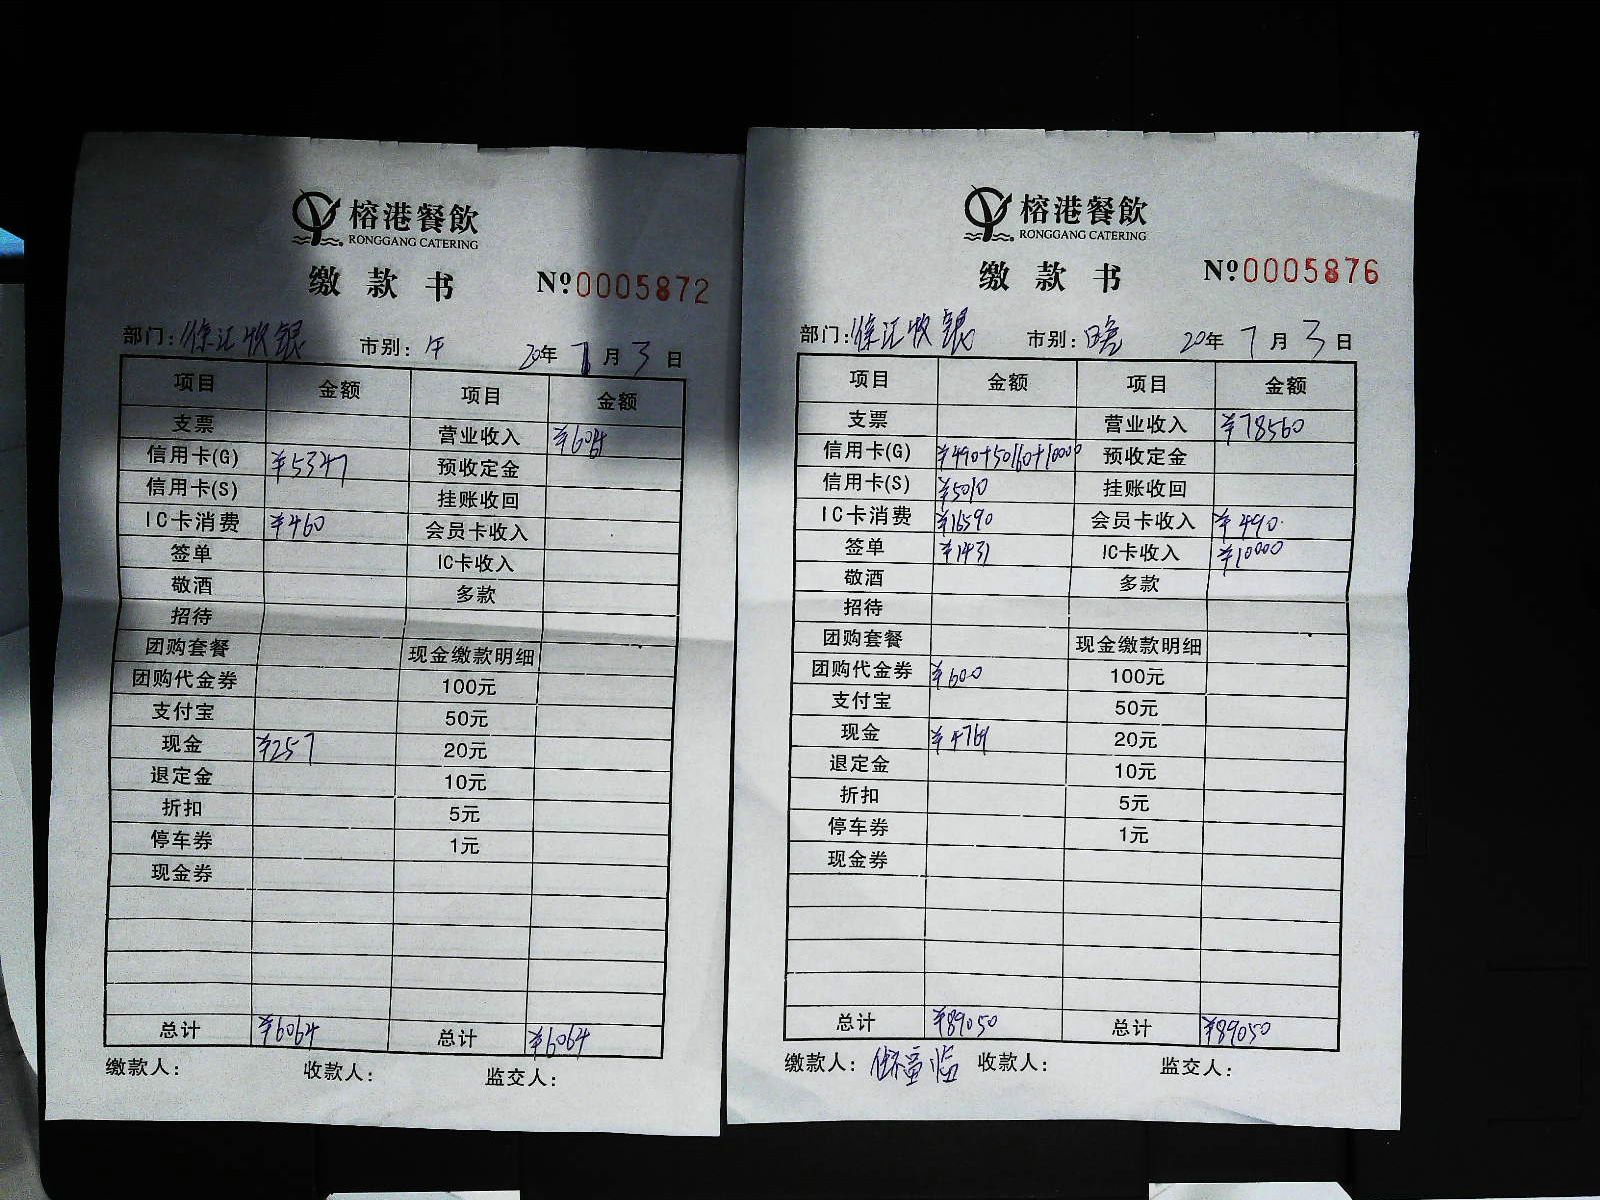 榕港餐飲
RONGGANG CATERING
缴款书 №0005872
部门:徐汇收银 市别:午 20年7月3日
项目 金额 项目 金额
支票 营业收入 ¥6064
信用卡(G) ¥5347 预收定金
信用卡(S) 挂账收回
IC卡消费 ¥460 会员卡收入
签单 IC卡收入
敬酒 多款
招待
团购套餐 现金缴款明细
团购代金券 100元
支付宝 50元
现金 ¥257 20元
退定金 10元
折扣 5元
停车券 1元
现金券
总计 ¥6064 总计 ¥6064
缴款人: 收款人: 监交人:
榕港餐飲
RONGGANG CATERING
缴款书 №0005876
部门:徐汇收银 市别:晚 20年7月3日
项目 金额 项目 金额
支票 营业收入 ¥78560
信用卡(G) ¥490+50160+10000 预收定金
信用卡(S) ¥5010 挂账收回
IC卡消费 ¥16590 会员卡收入 ¥490
签单 ¥1431 IC卡收入 ¥10000
敬酒 多款
招待
团购套餐 现金缴款明细
团购代金券 ¥600 100元
支付宝 50元
现金 ¥4769 20元
退定金 10元
折扣 5元
停车券 1元
现金券
总计 ¥89050 总计 ¥89050
缴款人: 收款人: 监交人: